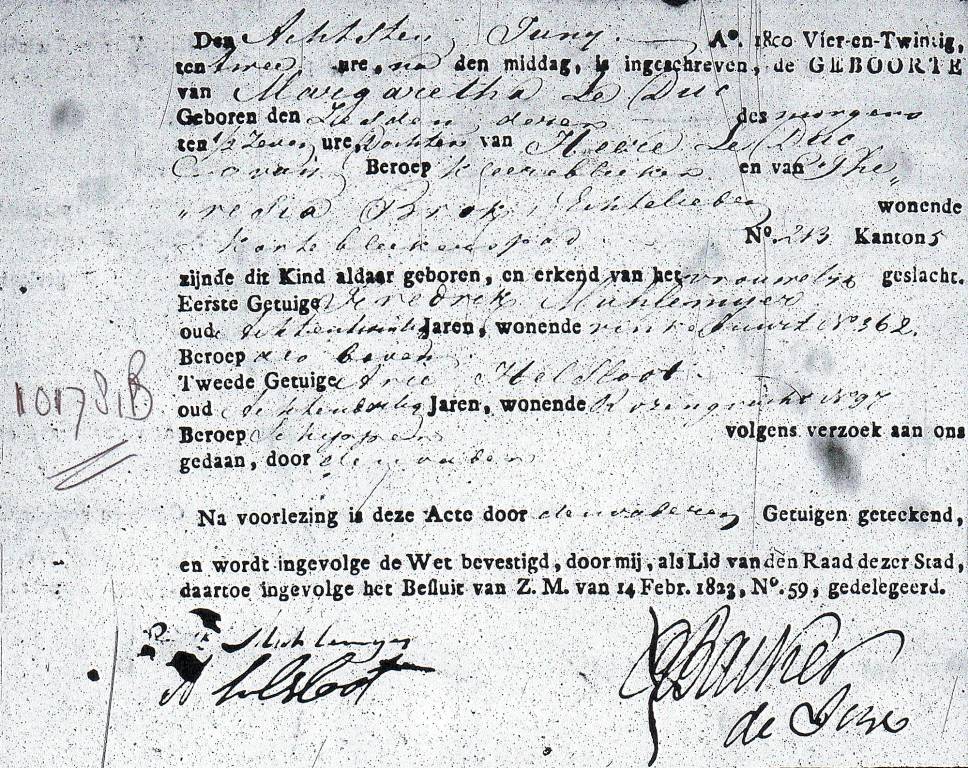 Den Achtsten Juny A°. 1800 Vier-en-Twintig,
ten twee ure, na den middag, is ingeschreven, de GEBOORTE
van Margaretha Le Duc
Geboren den Zesden dezer des morgens
ten ½ Zeven ure, Dochter van Le Duc
Beroep kleerebleeker en van The„
„resia Brok, Echtelieden wonende
Korte bleekerspad N°. 213 Kanton 5
zijnde dit Kind aldaar geboren, en erkend van het vrouwelijk geslacht.
Eerste Getuige Fredrik Muhlemyer
oud Jaren, wonende N° 362.
Beroep als boven
Tweede Getuige Arie Helsloot
oud Achtendertig Jaren, wonende Rozengracht N° 97
Beroep Schipper volgens verzoek aan ons
gedaan, door den vader
10178,B
Na voorlezing is deze Acte door den vader en Getuigen geteekend,
en wordt ingevolge de Wet bevestigd, door mij, als Lid van den Raad dezer Stad,
daartoe ingevolge het Besluit van Z. M. van 14 Febr. 1823, N°. 59, gedelegeerd.
A Helsloot